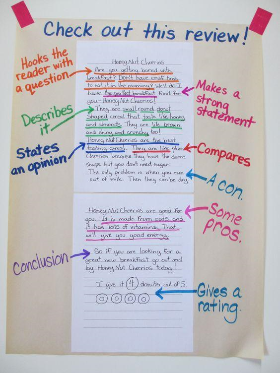 Check out this review!
Hooks the
reader with
a question
Describes
it
States
an opinion
Conclusion
Honey Nut Cheerios
Are you getting bored with
breakfast? Don't have much time
to eat it in the morning? Well do I
have the perfect breakfast food for
you - Honey Nut Cheerios!
They are small round donut
shaped cereal that taste like honey
and almonds. They are
too!
Honey Nut Cheerios are the best
tasting cereal. They are like plain
Cheerios because they have the same
shape but you don't need sugar.
The only problem is when you run
out of milk. Then they can be dry.
Honey Nut Cheerios are good for
you. It is made from oats and
it has lots of vitamins. That
will give you good energy.
So if you are looking for a
great new breakfast go out and
buy Honey Nut Cheerios today.
I give it 4 donuts out of 5.
Makes a
strong
statement.
Compares
A con.
Some
pros.
Gives a
rating.